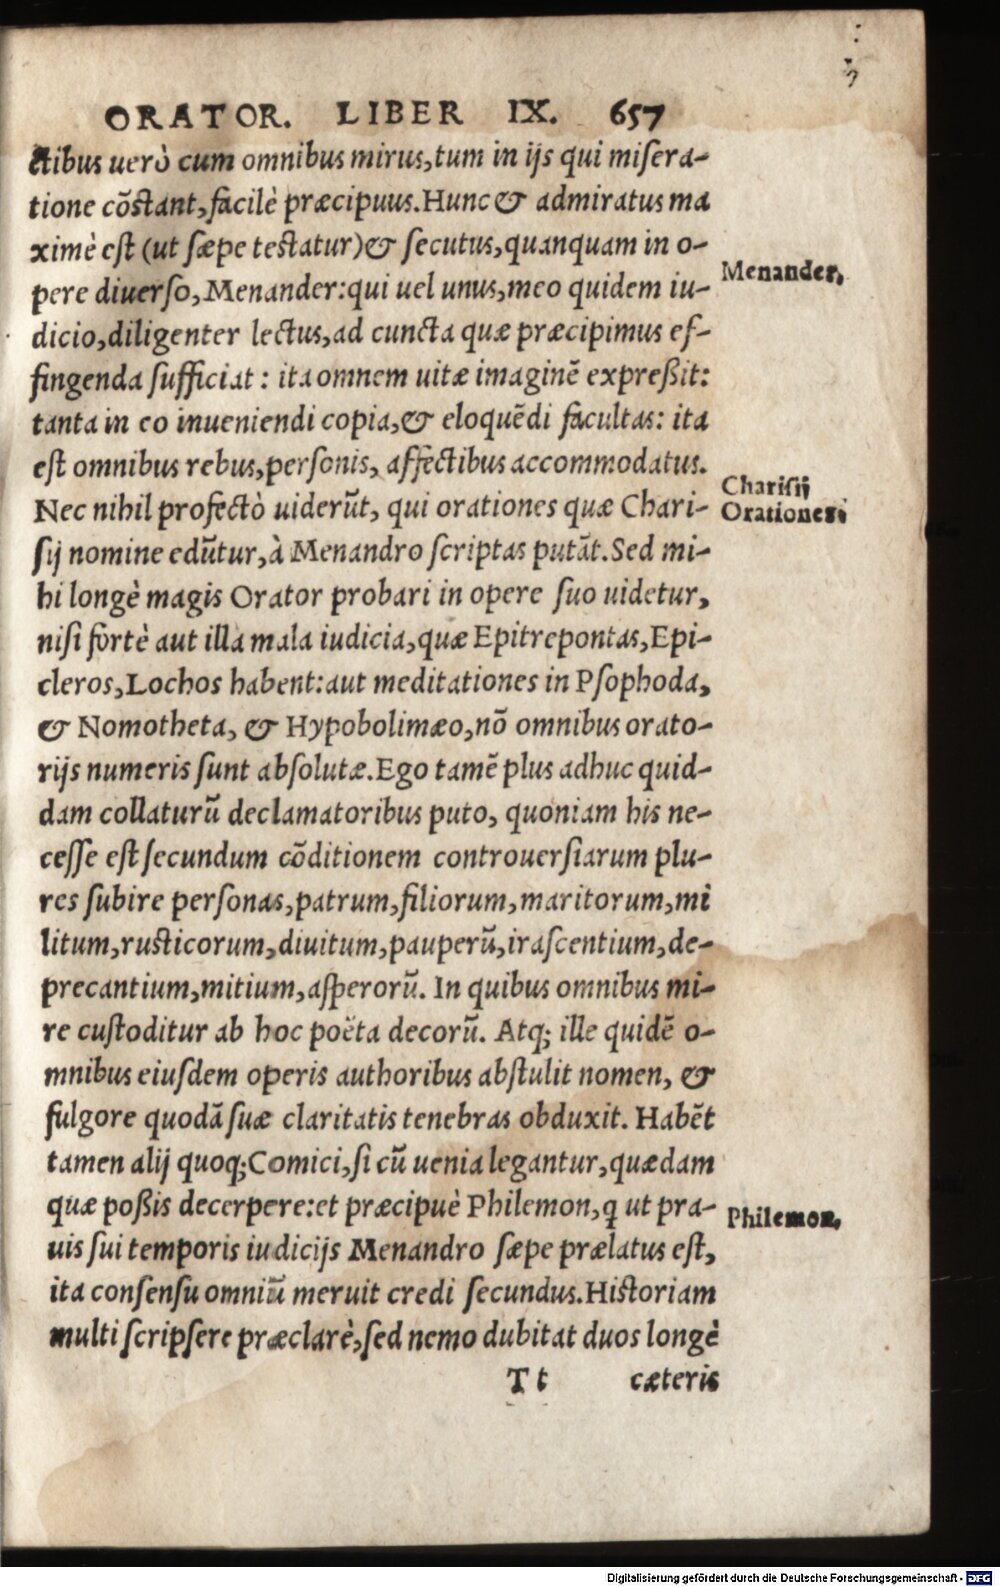 ORATOR. LIBER IX. 657
ctibus uerò cum omnibus mirus, tum in ijs qui misera-
tione cõstant, facilè præcipuus. Hunc & admiratus ma
ximè est (ut sæpe testatur) & secutus, quanquam in o-
pere diuerso, Menander: qui uel unus, meo quidem iu-
Menander,
dicio, diligenter lectus, ad cuncta quæ præcipimus ef-
fingenda sufficiat: ita omnem uitæ imaginẽ expreßit:
tanta in eo inueniendi copia, & eloquẽdi facultas: ita
est omnibus rebus, personis, affectibus accommodatus.
Nec nihil profectò uiderũt, qui orationes quæ Chari-
Charisij
Orationes
sij nomine edũtur, à Menandro scriptas putãt. Sed mi-
hi longè magis Orator probari in opere suo uidetur,
nisi fortè aut illa mala iudicia, quæ Epitrepontas, Epi-
cleros, Lochos habent: aut meditationes in Psophoda,
& Nomotheta, & Hypobolimæo, nõ omnibus orato-
rijs numeris sunt absolutæ. Ego tamẽ plus adhuc quid-
dam collaturũ declamatoribus puto, quoniam his ne-
cesse est secundum cõditionem controuersiarum plu-
res subire personas, patrum, filiorum, maritorum, mi
litum, rusticorum, diuitum, pauperũ, irascentium, de-
precantium, mitium, asperorũ. In quibus omnibus mi-
re custoditur ab hoc poëta decorũ. Atq; ille quidẽ o-
mnibus eiusdem operis authoribus abstulit nomen, &
fulgore quodã suæ claritatis tenebras obduxit. Habẽt
tamen alij quoq; Comici, si cũ uenia legantur, quædam
quæ poßis decerpere: et præcipuè Philemon, q ut pra-
Philemon,
uis sui temporis iudicijs Menandro sæpe prælatus est,
ita consensu omniũ meruit credi secundus. Historiam
multi scripsere præclarè, sed nemo dubitat duos longè
T t cæteris
Digitalisierung gefördert durch die Deutsche Forschungsgemeinschaft - DFG